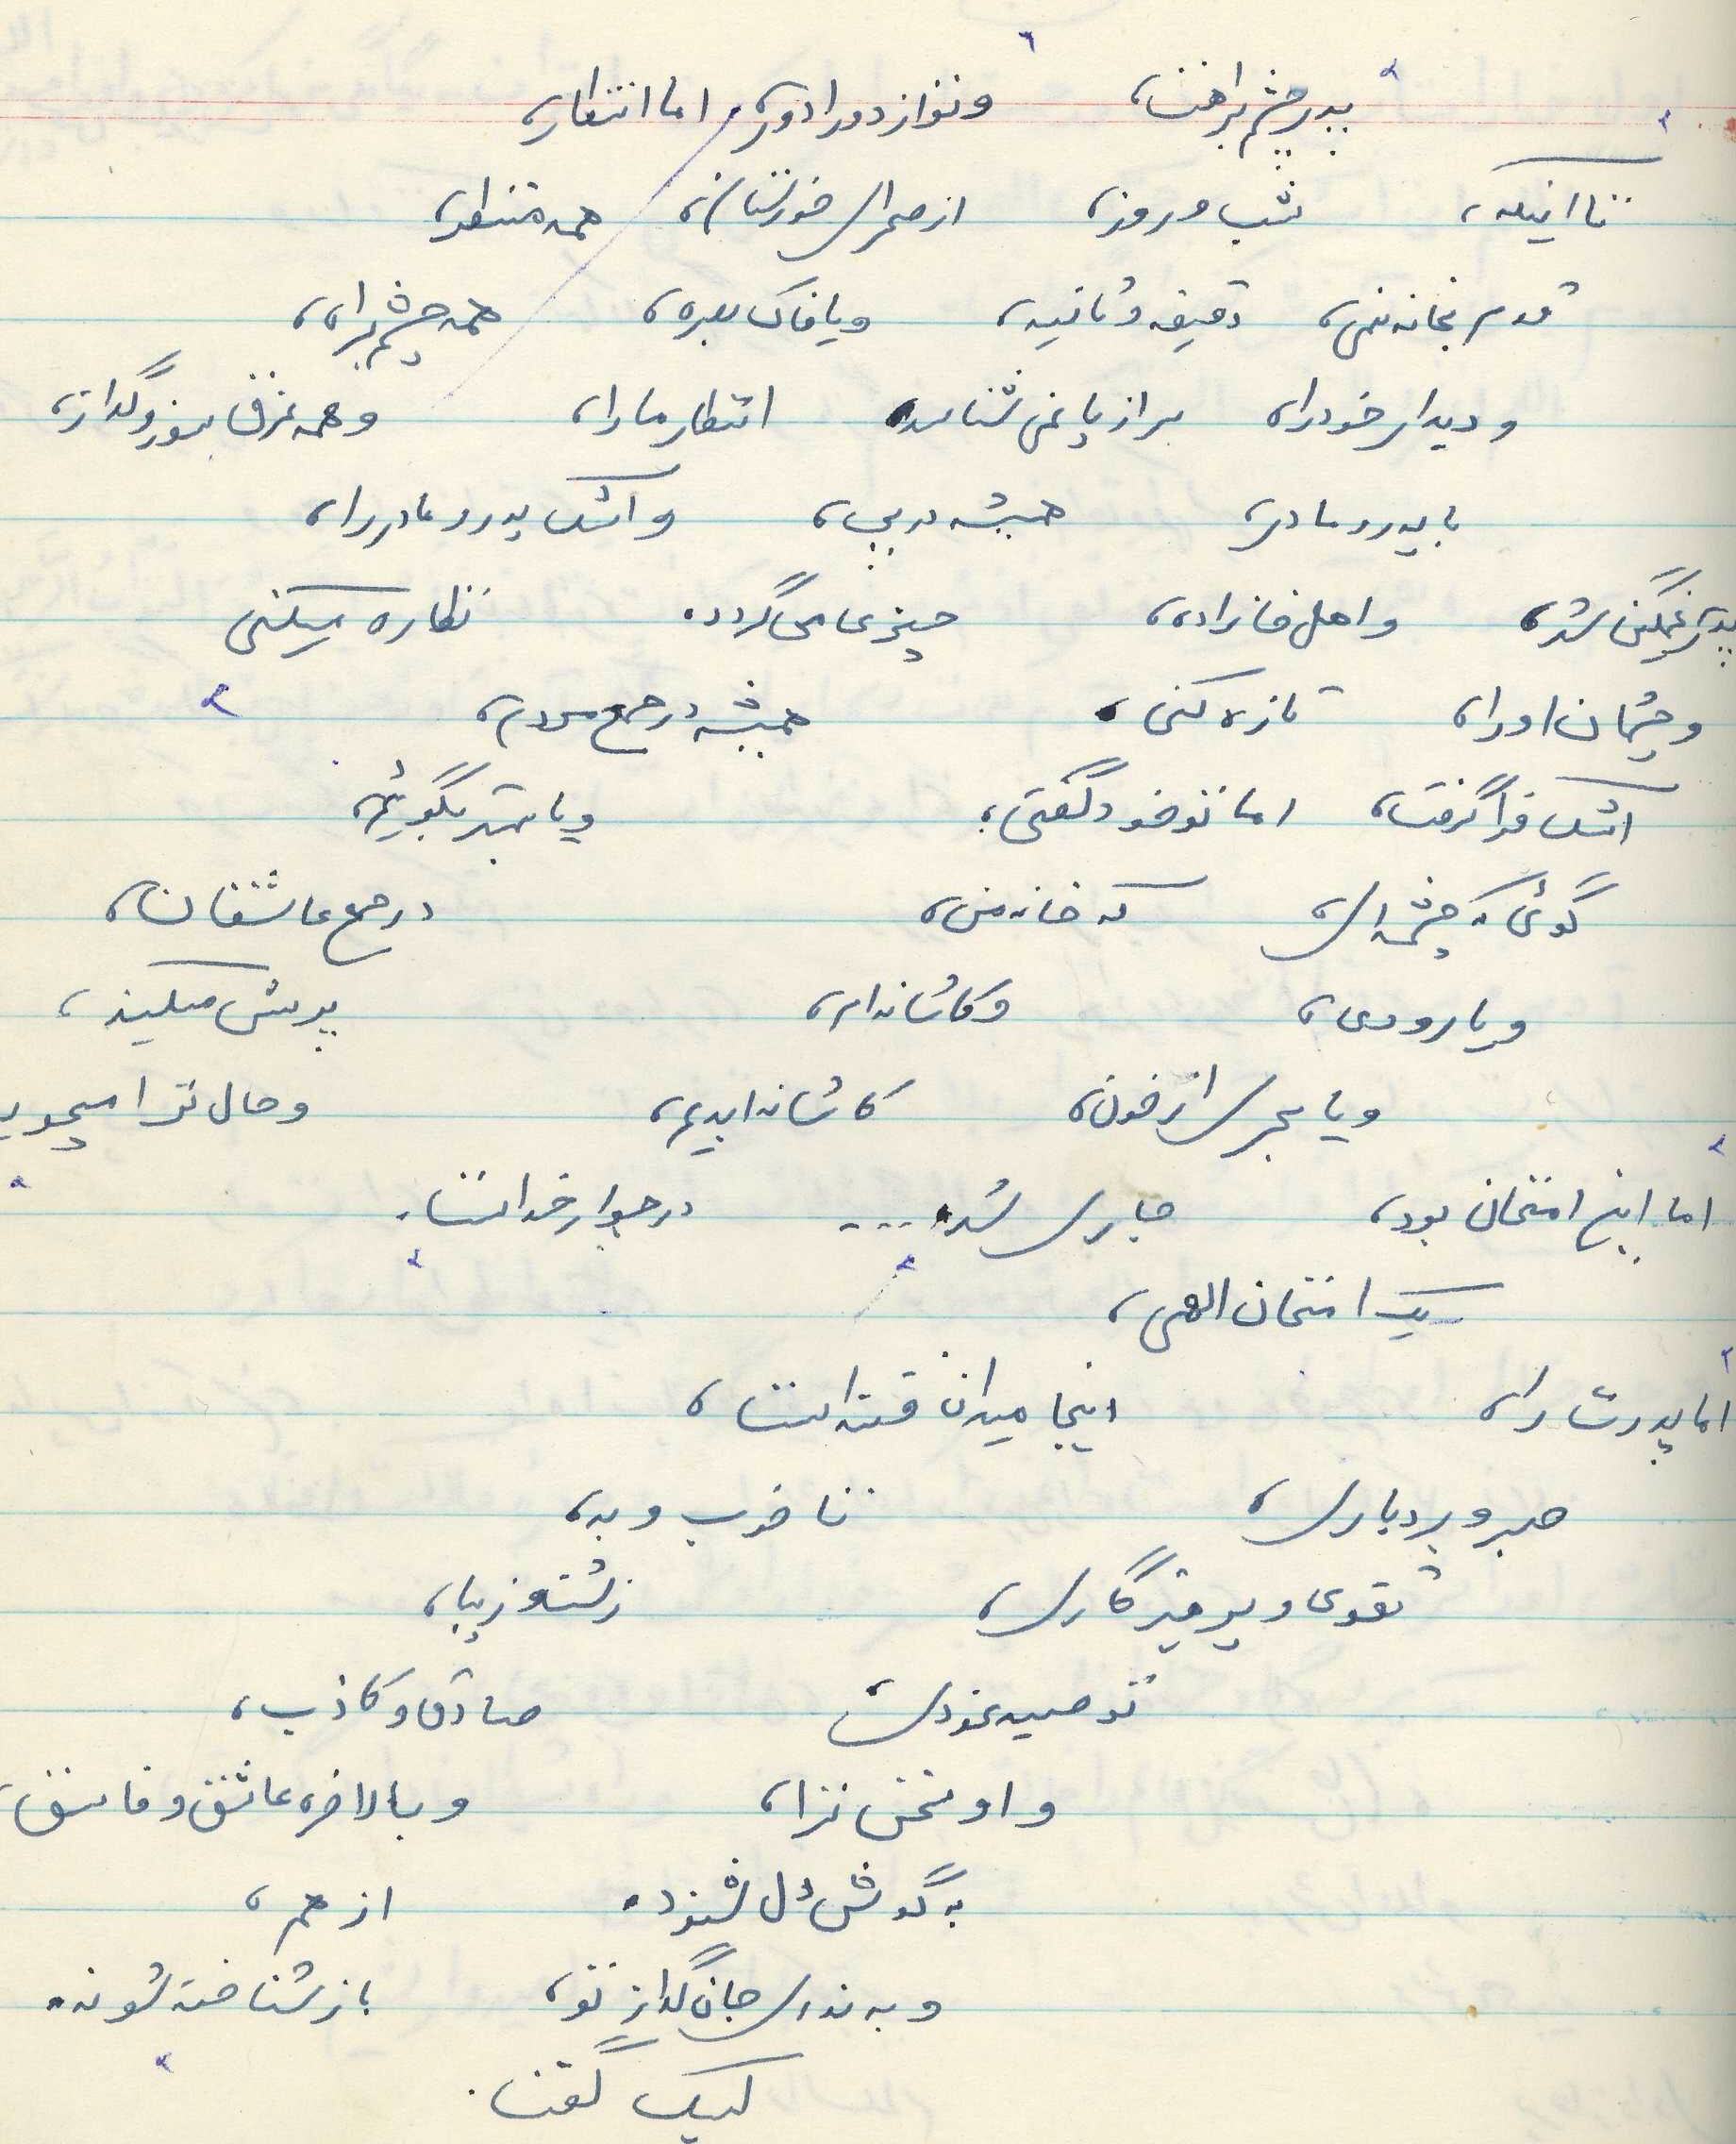 پدر چشم براهت، و تو از دور ادور، اما انتظار،
تا اینکه، شب و روز، از صحرای خوزستان، همه منتظر،
قدم بخانه نهی، دقیقه و ثانیه، و یا خاک بصره، همه چشم براه،
و دیدار خود را، سر از پا نمی شناسد انتظار ما را، و همه غرق سوز و گداز،
با پدر و مادر، همیشه در پی، و اشک پدر و مادر را،
پدر غمگین شد، و اهل خانواده، چیزی می گردد. نظاره میکنی
و چشمان او را، تازه کنی، همیشه در جمع مردم،
اشک فرا گرفت، اما تو خود گفتی؛ و یا بهتر بگوئیم،
گوئی که چشمه ای، که خانه من، در جمع عاشقان،
و یا رودی، و کاشانه ام، پرسش میکنید،
و یا بحری از خون، کاشانه ابدیم، و حال ترا میجوید
اما این امتحان بود، جاری شد، .... در جوار خداست.
یک امتحان الهی،
اما پدرت را، اینجا میدان فتنه است،
صبر و بردباری، تا خوب و بد،
تقوی و پرهیزگاری، زشت و زیبا،
توصیه نمودی، صادق و کاذب،
و او سخن ترا، و بالاخره عاشق و فاسق،
به گوش دل شنود، از هم،
و به ندای جانگداز تو، باز شناخته شوند.
لبیک گفت.